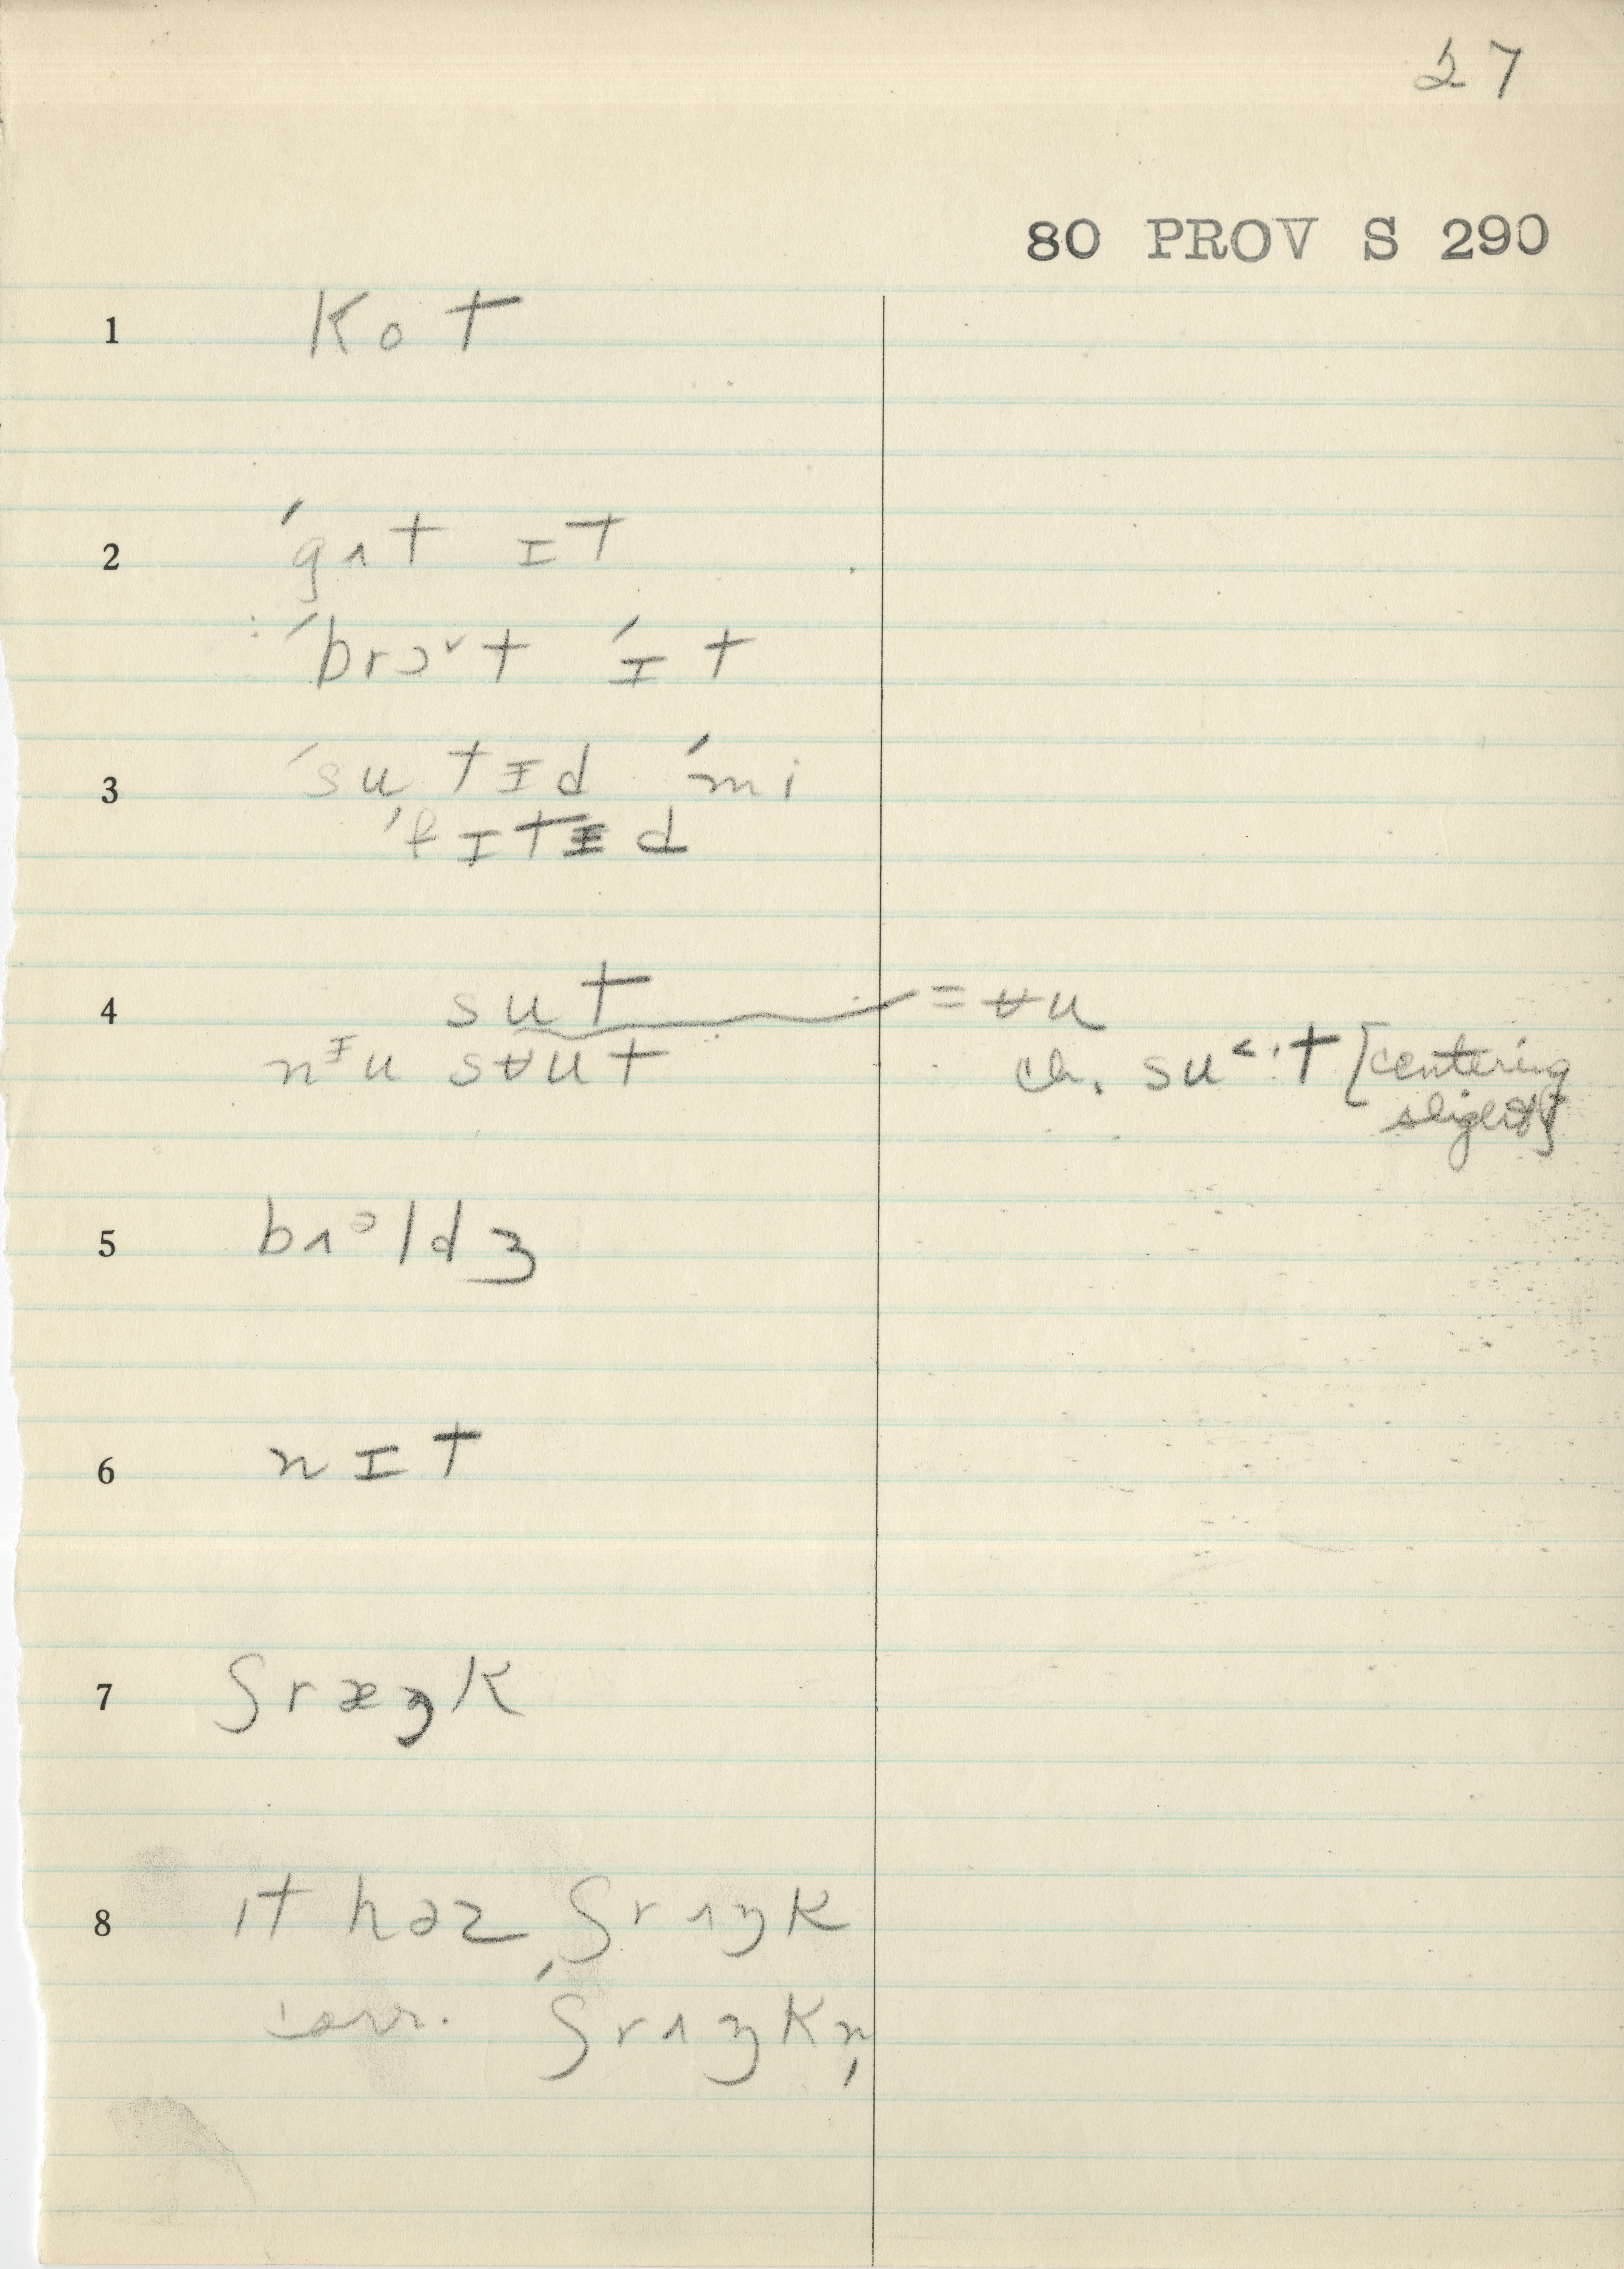 27
80 PROV S 290
1 kot
2 ˈgʌt ɪt
ˈbrɔˇt ˈɪt
3 ˈsutɨd ˈmi
ˈfɪtɨd
4 sut = ʉu
nᵻu sʉut ch. suᑉ·t [centering
slightly]
5 bʌᵊldʒ
6 nɪt
7 ʃræŋk
8 ɪt həz ʃrʌŋk
corr. ˈʃrʌŋkn̩